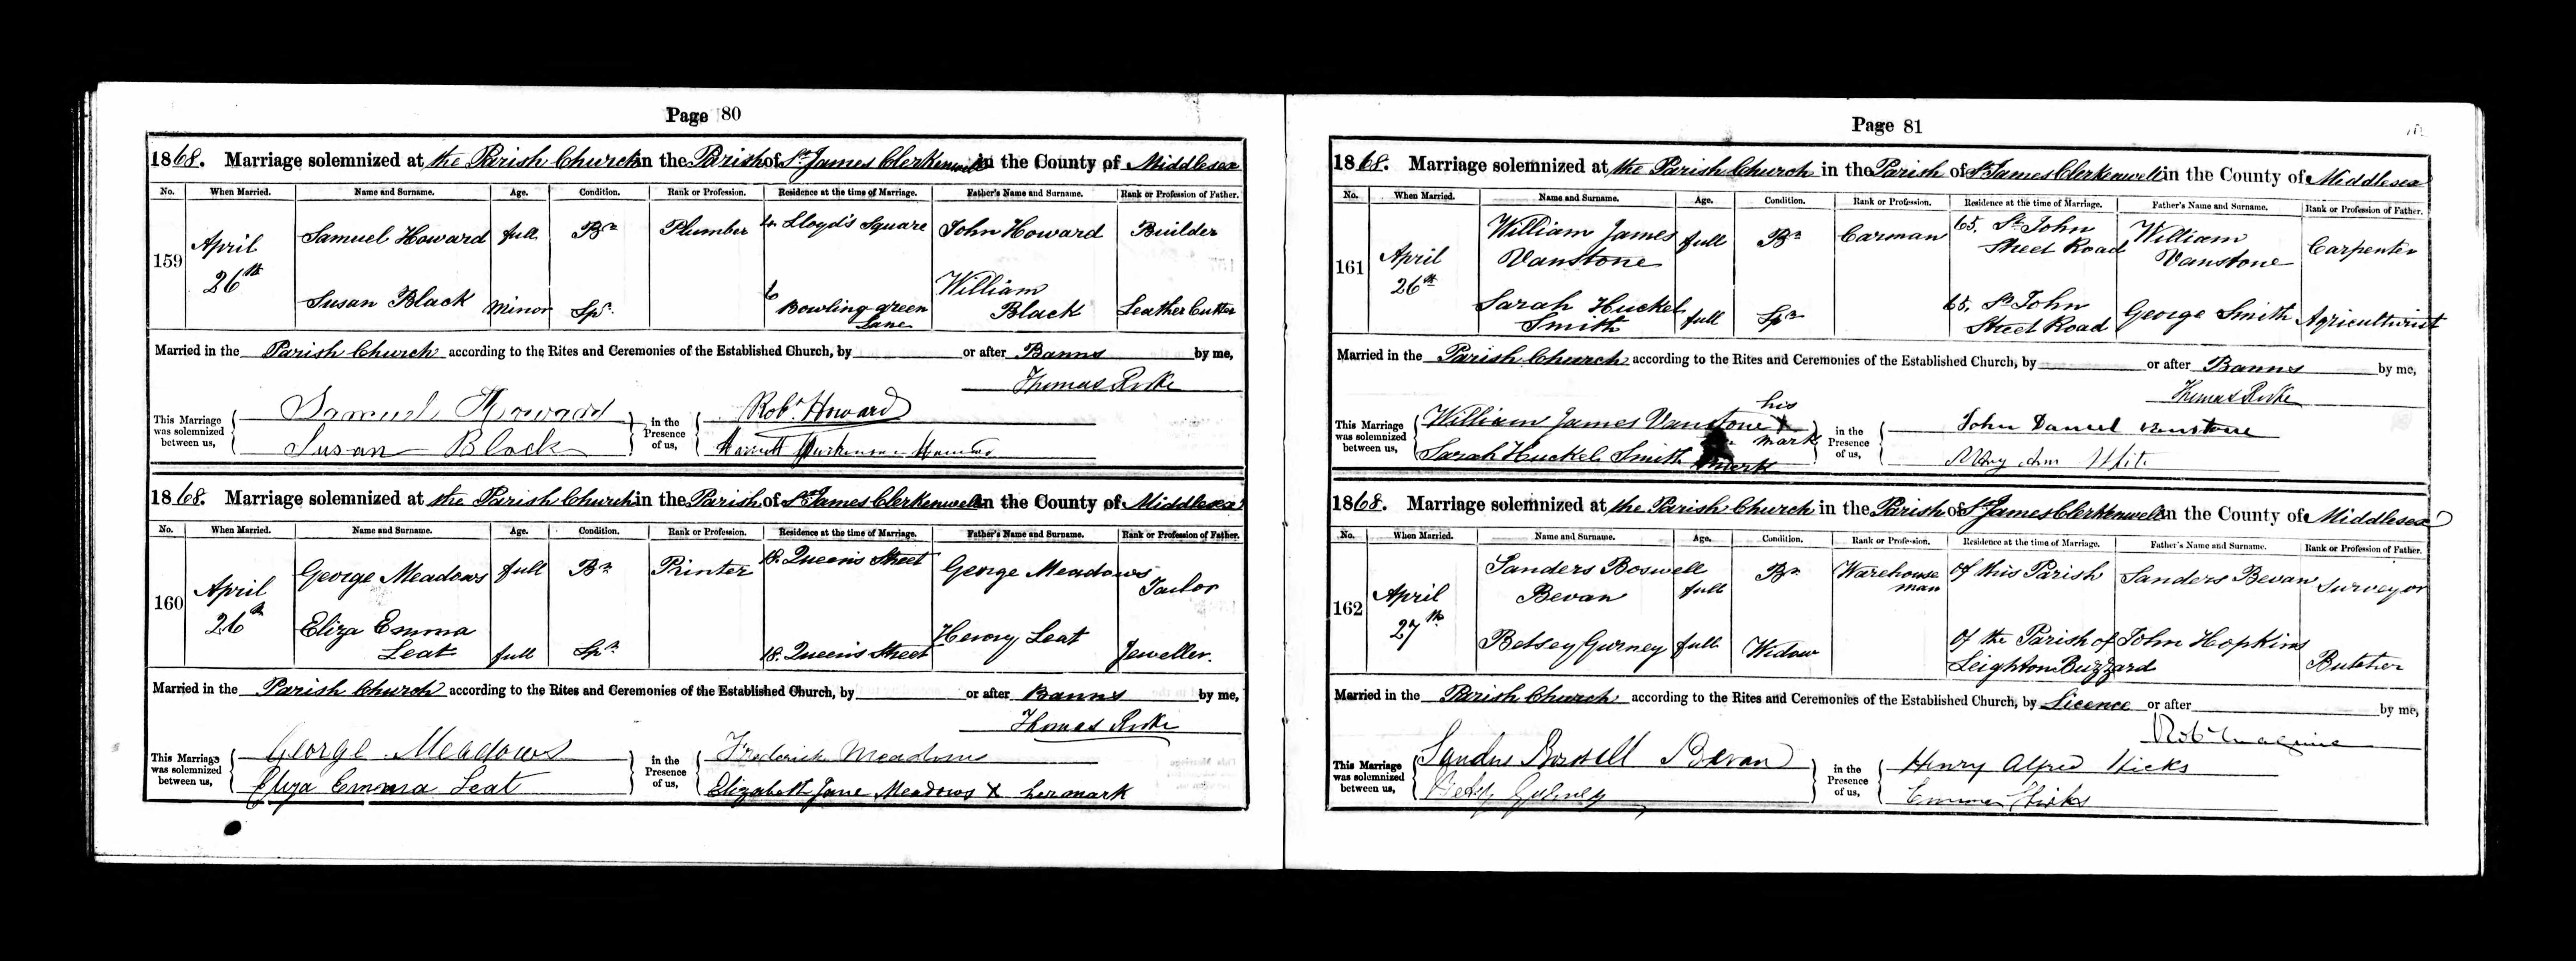 Page 80
1868. Marriage solemnized at the Parish Church in the Parish of St James Clerkenwell in the County of Middlesex
No. When Married. Name and Surname. Age. Condition. Rank or Profession. Residence at the time of Marriage. Father's Name and Surname. Rank or Profession of Father.
159 April 26th Samuel Howard full Br Plumber 4. Lloyd's Square John Howard Builder
Susan Black Minor Spr 6 Bowling green Lane William Black Leather Cutter
Married in the Parish Church according to the Rites and Ceremonies of the Established Church, by or after Banns by me,
Thomas
This Marriage was solemnized between us, Samuel Howard in the Presence of us, Robt Howard
Susan Black Howard
1868. Marriage solemnized at the Parish Church in the Parish of St James Clerkenwell in the County of Middlesex
No. When Married. Name and Surname. Age. Condition. Rank or Profession. Residence at the time of Marriage. Father's Name and Surname. Rank or Profession of Father.
160 April 26th George Meadows full Br Printer 18. Queen's Street George Meadows Tailor
Eliza Emma Leat full Spr 18. Queen's Street Henry Leat Jeweller.
Married in the Parish Church according to the Rites and Ceremonies of the Established Church, by or after Banns by me,
Thomas
This Marriage was solemnized between us, George Meadows in the Presence of us, Frederick Meadows
Eliza Emma Leat Elizabeth Jane Meadows X her mark
Page 81
1868. Marriage solemnized at the Parish Church in the Parish of St James Clerkenwell in the County of Middlesex
No. When Married. Name and Surname. Age. Condition. Rank or Profession. Residence at the time of Marriage. Father's Name and Surname. Rank or Profession of Father.
161 April 26th William James Vanstone full Br Carman 65. St John Street Road William Vanstone Carpenter
Sarah Huckel Smith full Spr 65. St John Street Road George Smith Agriculturist
Married in the Parish Church according to the Rites and Ceremonies of the Established Church, by or after Banns by me,
Thomas
This Marriage was solemnized between us, William James Vanstone X his mark in the Presence of us, John Daniel Vanstone
Sarah Huckel Smith mark Mary Ann White
1868. Marriage solemnized at the Parish Church in the Parish of St James Clerkenwell in the County of Middlesex
No. When Married. Name and Surname. Age. Condition. Rank or Profession. Residence at the time of Marriage. Father's Name and Surname. Rank or Profession of Father.
162 April 27th Sanders Boswell Bevan full Br Warehouse man Of this Parish Sanders Bevan Surveyor
Betsey Gurney full Widow Of the Parish of Leighton Buzzard John Hopkins Butcher
Married in the Parish Church according to the Rites and Ceremonies of the Established Church, by Licence or after by me,
Robt Maguire
This Marriage was solemnized between us, Sanders Boswell Bevan in the Presence of us, Henry Alfred Hicks
Betsy Gurney Emma Hicks